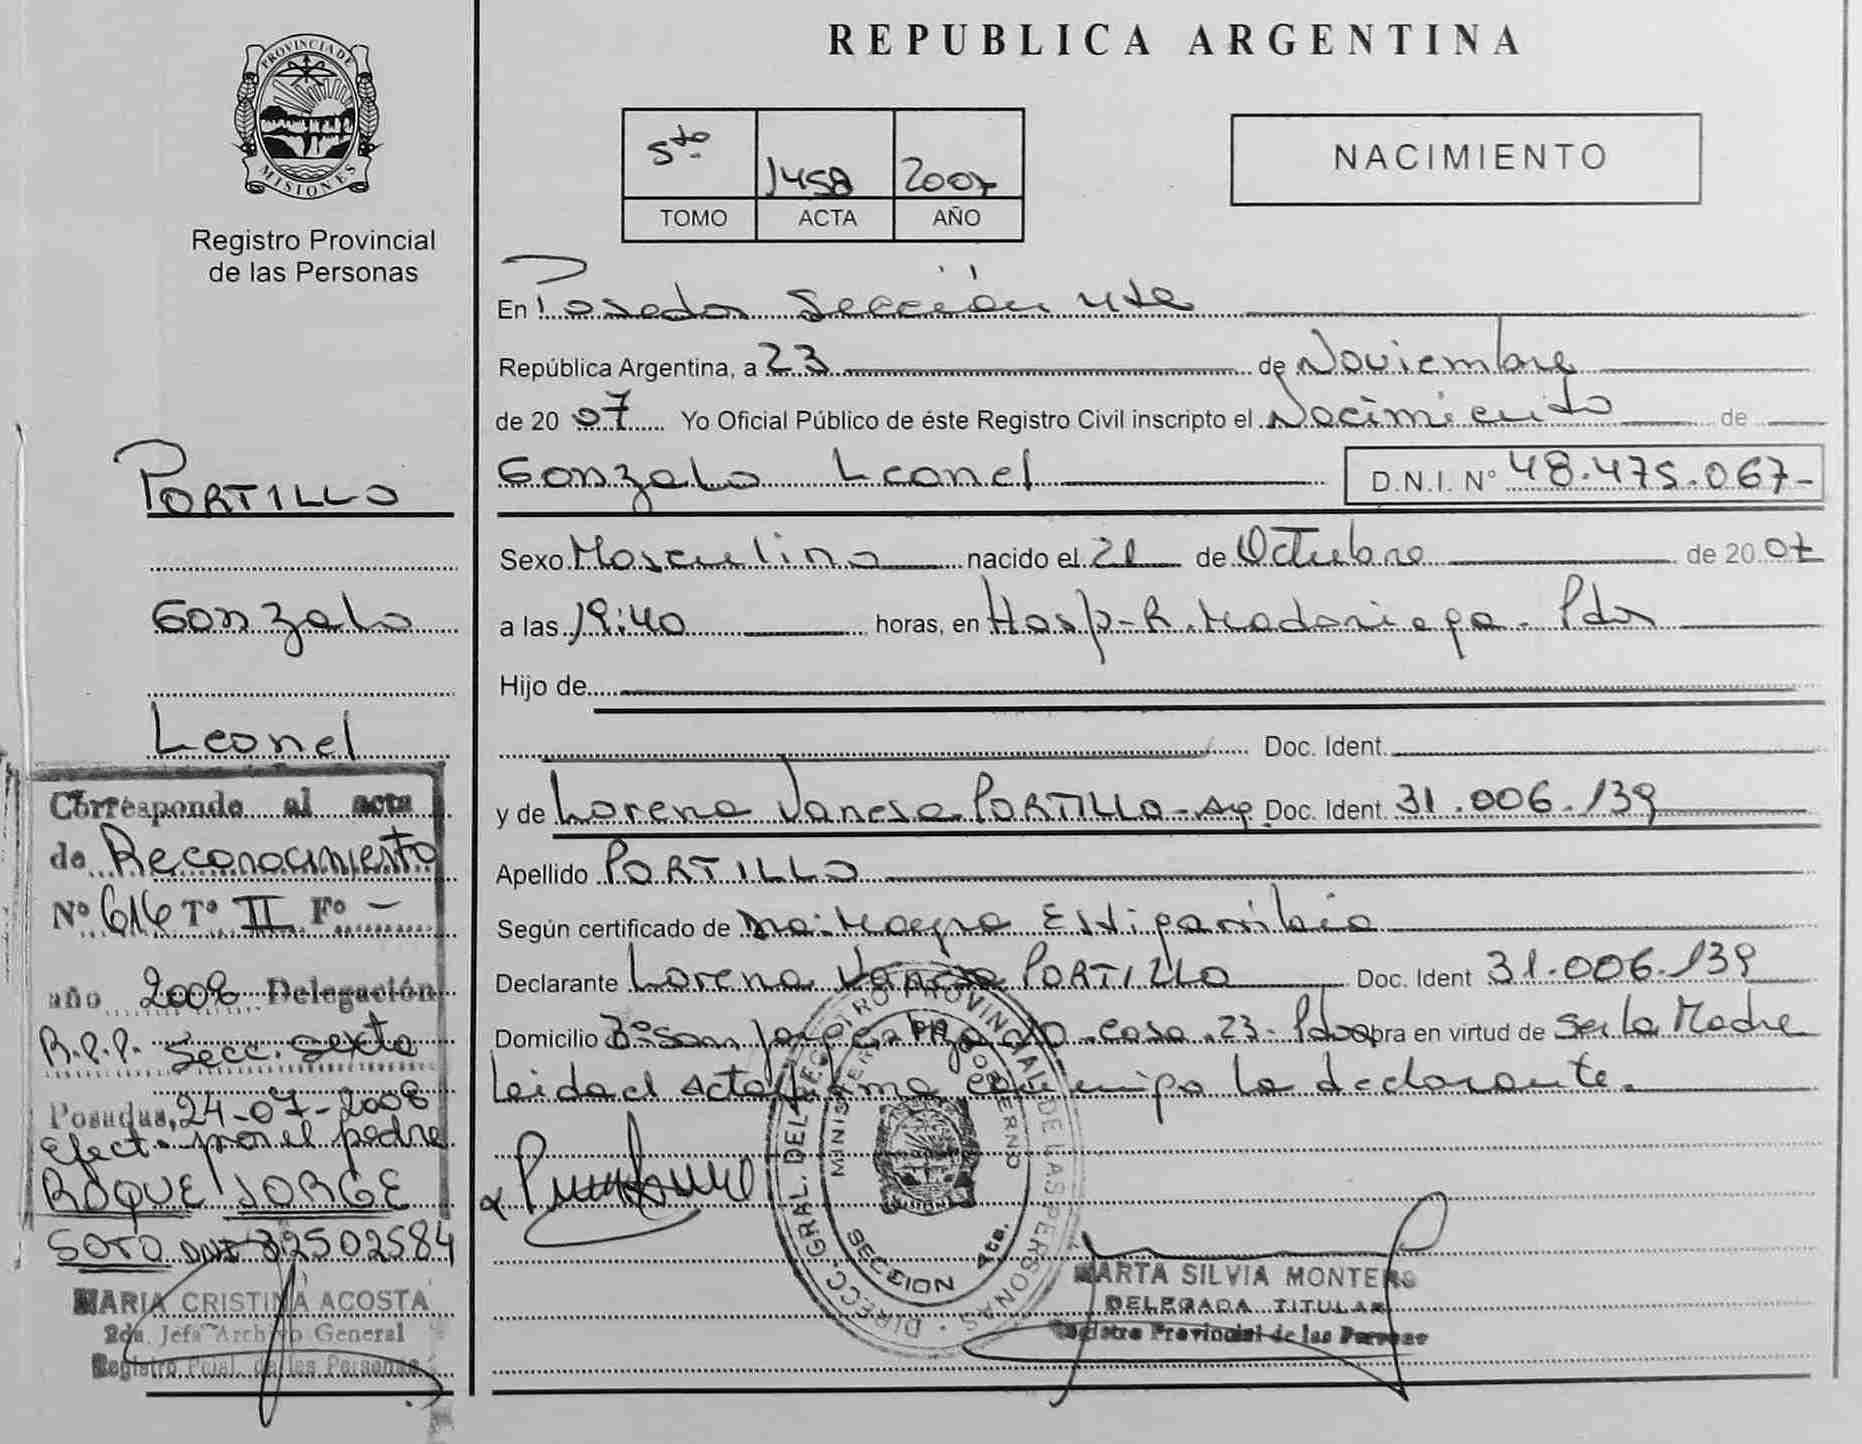 REPUBLICA ARGENTINA
PROVINCIA DE
MISIONES
Registro Provincial
de las Personas
5to
1458
2007
TOMO
ACTA
AÑO
NACIMIENTO
En Posadas Sección 4ta
República Argentina, a 23 de Noviembre
de 20 07 Yo Oficial Público de éste Registro Civil inscripto el Nacimiento de
Gonzalo Leonel D.N.I. Nº 48.475.067-
Sexo Masculino nacido el 21 de Octubre de 20 07
a las 19:40 horas, en Hosp-R. Madariaga- Pdas
Hijo de
Doc. Ident.
y de Lorena Vanesa PORTILLO-Arg. Doc. Ident. 31.006.139
Apellido PORTILLO
Según certificado de Estigarribia
Declarante Lorena Vanesa PORTILLO Doc. Ident 31.006.139
Domicilio casa 23- Pdas obra en virtud de Ser la Madre
Leida el Acta firma conmigo la declarante.
PORTILLO
Gonzalo
Leonel
Corresponde al acta
de Reconocimiento
Nº 616 Tº II Fº -
año 2008 Delegación
R.P.P. Secc. Sexta
Posadas, 24-07-2008
Efect. por el padre
ROQUE JORGE
SOTO DNI 32502584
MARIA CRISTINA ACOSTA
2da. Jefa Archivo General
Registro Pcial. de las Personas
DIRECC. GRAL. DEL REGISTRO PROVINCIAL DE LAS PERSONAS
MINISTERIO DE GOBIERNO
MISIONES
SECCION 4ta.
MARTA SILVIA MONTERO
DELEGADA TITULAR
Registro Provincial de las Personas